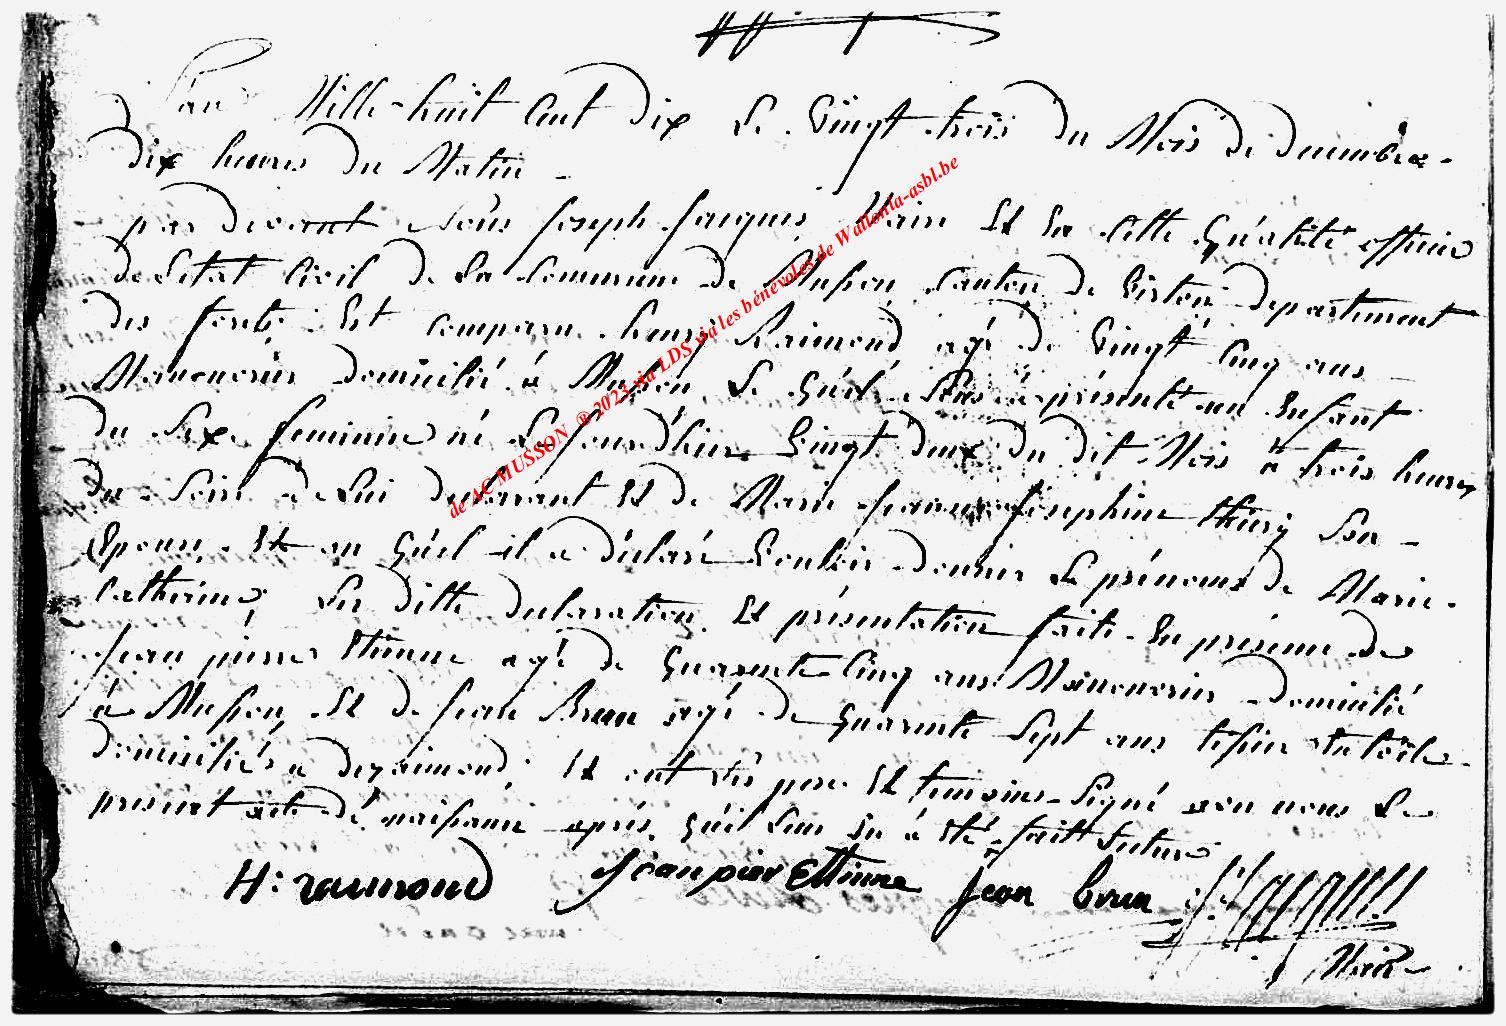 L'an Mille huit Cent Dix Le Vingt trois Du Mois De Decembre
Dix heures Du Matin
par Devant Nous Joseph Jacques Maire Et En Cette Qualité officier
De L'Etat Civil De La Commune De Musson Canton De Virton departement
des forêts Est comparu henry Raimond agé De Vingt Cinq ans
Manoeuvrier Domicilié à Musson Le Quel Nous à présenté un Enfant
Du Sexe feminin né Le Jourd'hier Vingt deux Du dit Mois à trois heures
Du Soire De Lui declarant Et De Marie Jeanne Josephine thiery Son
Epouse, Et au Quel il a déclaré Vouloir Donner Le prénoms De Marie
Catherine, Les ditte declaration Et présentation faite En présence De
Jean pierre Etienne agé De Quarente Cinq ans Manoeuvrier Domicilié
à Musson Et De Jean Brun agé De Quarente Sept ans Domiciliés
domiciliés à Et ont Les pere Et temoins Signé avec nous Le
present acte De naissance après Qu'il Leur En à Eté fait Lecture
H: raimond Jean pier Ettienne Jean brun
Maire
de AC MUSSON ® 2023 via LDS via les bénévoles de Wallonia-asbl.be